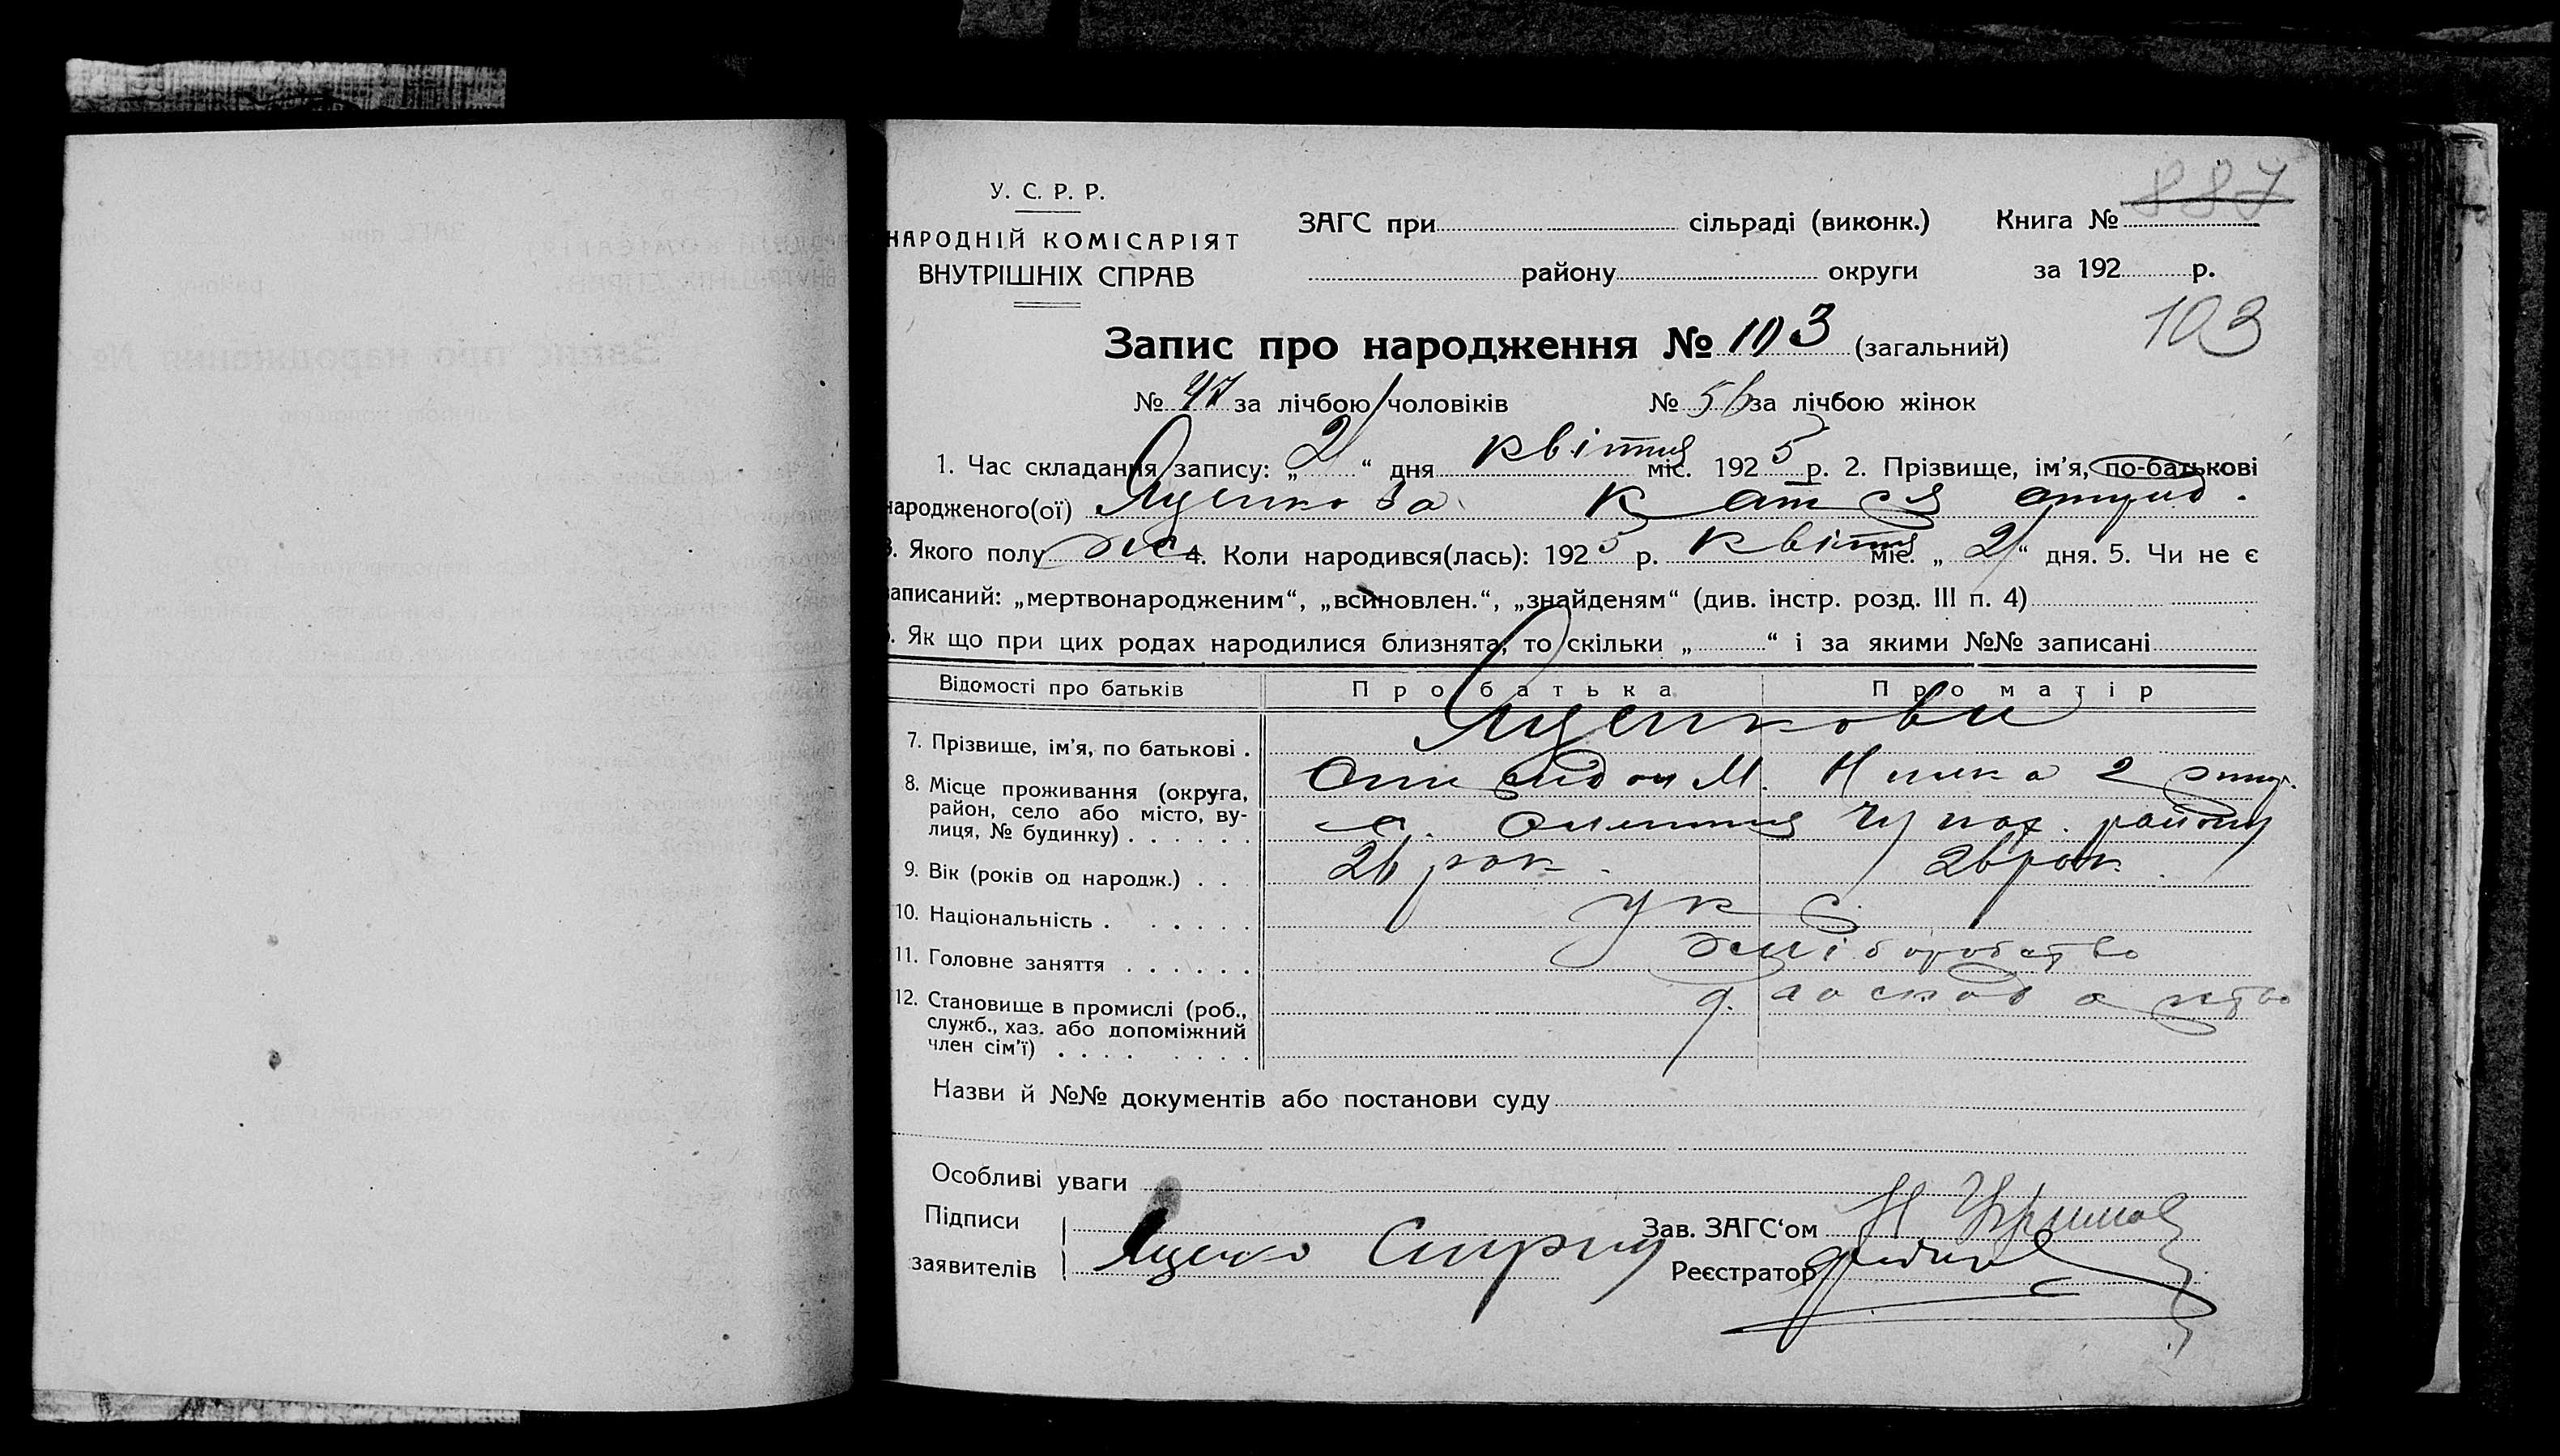 887
У. С. Р. Р.
НАРОДНІЙ КОМІСАРІЯТ
ВНУТРІШНІХ СПРАВ
ЗАГС при сільраді (виконк.) Книга №
району округи за 192 р.
103
Запис про народження № 103 (загальний)
№ 47 за лічбою чоловіків № 56 за лічбою жінок
1. Час складання запису: „ 2 “ дня квітня міс. 1925 р. 2. Прізвище, ім'я, по-батькові
народженого(ої) Яценкова
3. Якого полу ж 4. Коли народився(лась): 1925 р. квітня міс. „ 2 “ дня. 5. Чи не є
записаний: „мертвонародженим“, „всиновлен.“, „знайденям“ (див. інстр. розд. III п. 4)
6. Як що при цих родах народилися близнята, то скільки „ “ і за якими №№ записані
Відомості про батьків Про батька Про матір
7. Прізвище, ім'я, по батькові . Яценкови
8. Місце проживання (округа,
район, село або місто, ву-
лиця, № будинку) . . . . . . с. району
9. Вік (років од народж.) . . 26 рок. 26 рок.
10. Національність . . . . . . Укр
11. Головне заняття . . . . . . хліборобство
12. Становище в промислі (роб.,
служб., хаз. або допоміжний
член сім'ї) . . . . . . . .
Назви й №№ документів або постанови суду
Особливі уваги
Підписи
заявителів Яценко
Зав. ЗАГС‘ом
Реєстратор